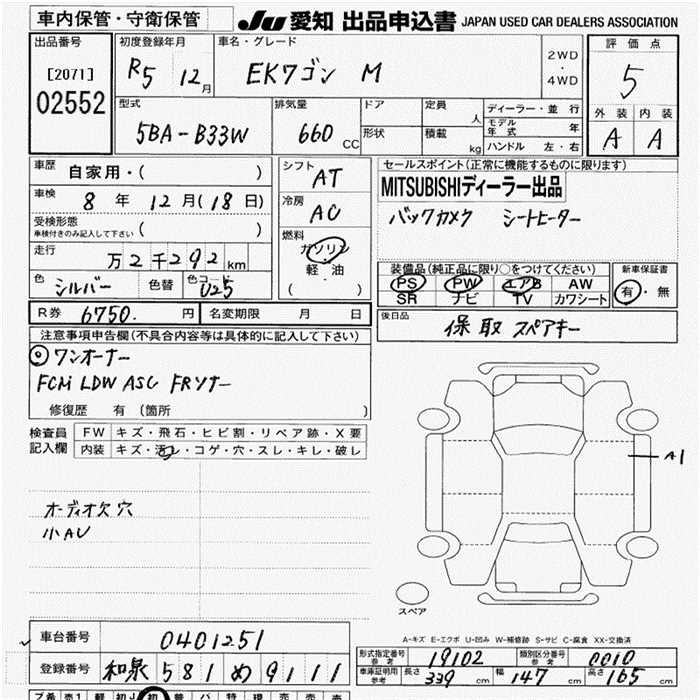 車内保管・守衛保管
JU 愛知 出品申込書 JAPAN USED CAR DEALERS ASSOCIATION
出品番号
[2071]
02552
初度登録年月
R5 12月
車名・グレード
EKワゴン M
2WD
・
4WD
評価点
5
外装 内装
A A
型式
5BA-B33W
排気量
660 CC
ドア
形状
定員 人
積載 kg
ディーラー・並行
モデル年式 年
ハンドル 左・右
車歴 自家用・( )
車検 8年 12月(18日)
受検形態
車検付きのみ記入して下さい ( )
走行 万2千292km
色 シルバー 色替 色コード U25
シフト AT
冷房 AC
燃料
ガソリン
軽・油
( )
セールスポイント(正常に機能するものに限ります)
MITSUBISHIディーラー出品
バックカメラ シートヒーター
装備品(純正品に限り○をつけてください)
PS PW エアB AW
SR ナビ TV カワシート
新車保証書
有・無
R券 6750. 円 名変期限 月 日
後日品
保 取 スペアキー
注意事項申告欄(不具合内容等は具体的に記入して下さい)
◎ワンオーナー
FCM LDW ASC FRソナー
修復歴 有 (箇所 )
検査員記入欄
FW キズ・飛石・ヒビ割・リペア跡・X要
内装 キズ・汚れ・コゲ・穴・スレ・キレ・破レ
オーディオ欠 穴
小AU
A1
スペア
A-キズ E-エクボ U-凹み W-補修跡 S-サビ C-腐食 XX-交換済
車台番号 0401251
登録番号 和泉 581 め 9111
形式指定番号 参考 19102
類別区分番号 参考 0010
車庫証明用 参考 長さ 339 cm 幅 147 cm 高さ 165 cm